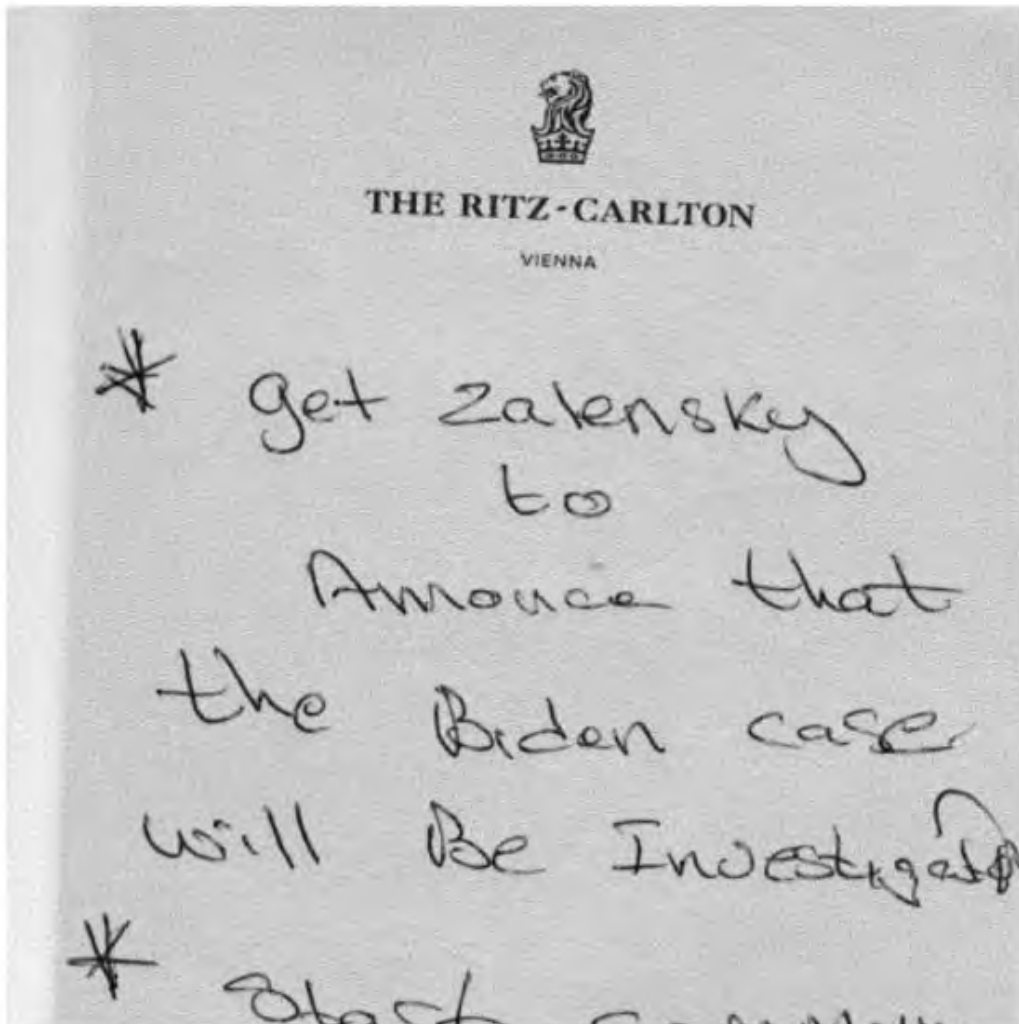 THE RITZ-CARLTON
VIENNA
* get Zalensky
to
Annouce that
the Biden case
will Be Investigated
* Start